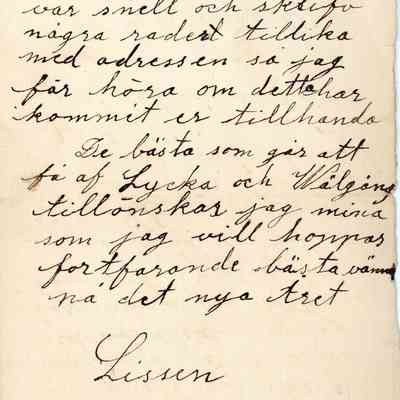 var snell och skrifv
några rader tillika
med adressen så jag
får höra om detta har
kommit er tillhanda
De bästa som går att
få af Lycka och Wälgång
tillönskas jag mina
som jag vill hoppas
fortfarande bästa vänner
på det nya Året
Lissen